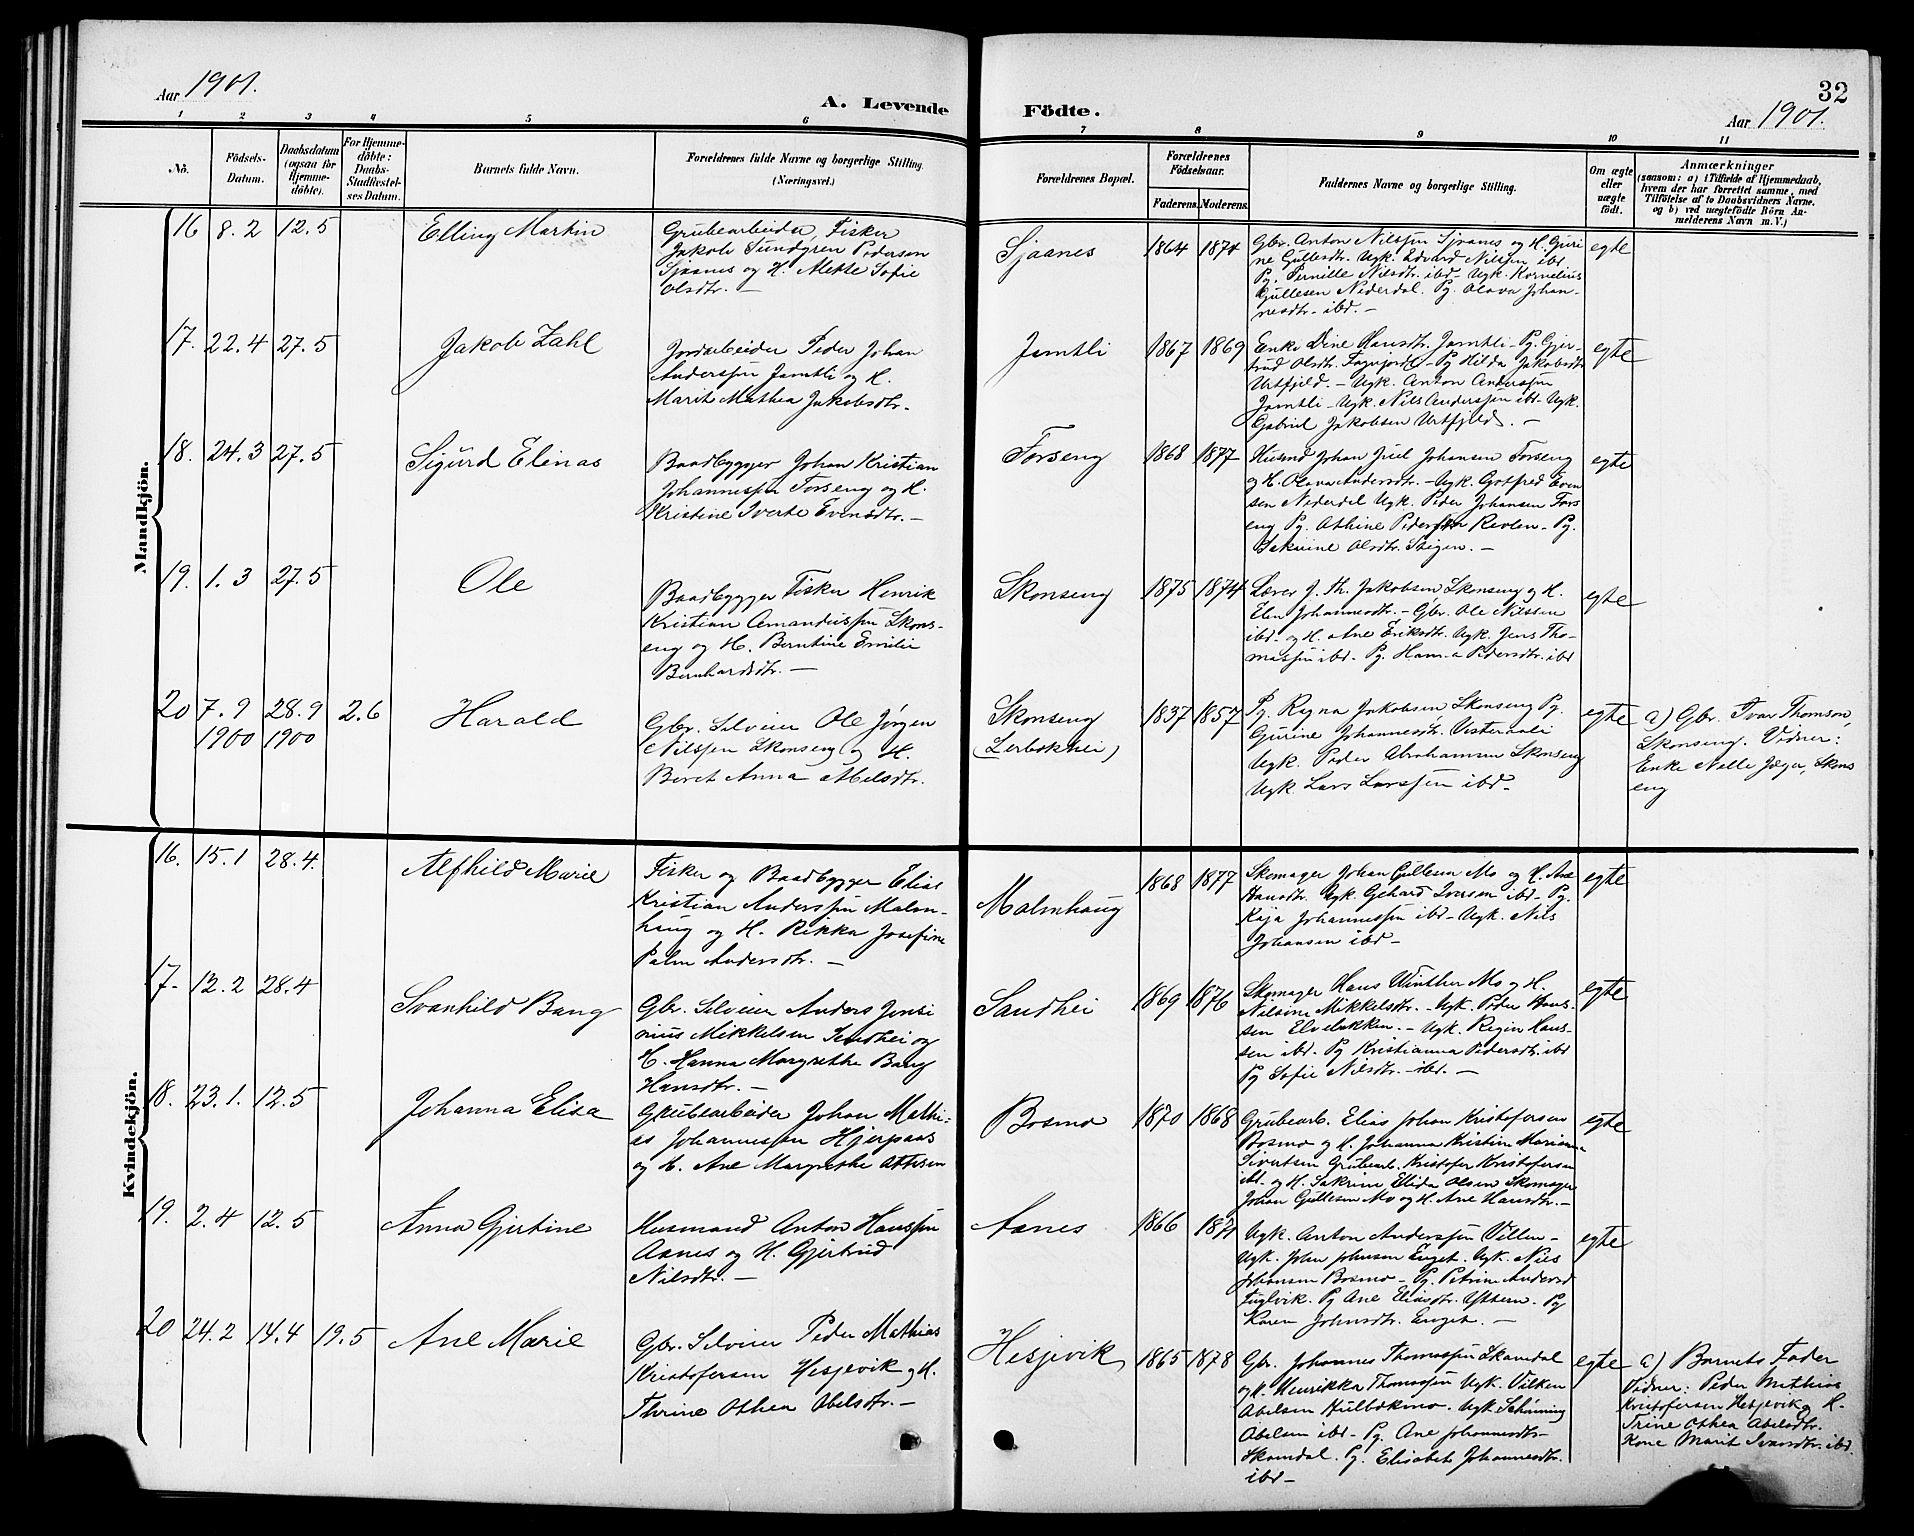 Aar 1901.
A. Levende Födte.
32
Aar 1901.
1 2 3 4 5 6 7 8 9 10 11
No.
Födsels-
Datum.
Daabsdatum
(ogsaa for
Hjemme-
döbte).
For Hjemme-
döbte:
Daabs-
Stadfæstel-
ses Datum.
Barnets fulde Navn.
Forældrenes fulde Navne og borgerlige Stilling.
(Næringsvei.)
Forældrenes Bopæl.
Forældrenes
Födselsaar.
Faderens. Moderens.
Faddernes Navne og borgerlige Stilling.
Om ægte
eller
uægte
födt.
Anmærkninger
(saasom: a) i Tilfælde af Hjemmedaab,
hvem der har forrettet samme, med
Tilföielse af to Daabsvidners Navne.
og b) ved uægtefödte Börn An-
melderens Navn m. V.)
Mandkjön.
16 8.2 12.5 Elling Martin
Grubearbeider, Fisker
Jakob Sundgren Pedersen
Sjaanes og H. Mette Sofie
Olsdtr. —
Sjaanes 1864 1874
Gbr. Anton Nilssen Sjaanes og H. Guri-
ne Gullesdtr. Ugk. Edvard Nilssen ibd
Pg. Pernille Nilsdtr. ibd – Ugk. Kornelius
Gullesen Nederdal. Pg. Olava Johan-
nesdtr. ibd. —
egte
17. 22.4 27.5 Jakob Zahl
Jordarbeider Peder Johan
Anderssen Jamtli og H.
Marit Mathea Jakobsdtr.
Jamtli 1867 1869
Enke Dine Hansdtr. Jamtli – Pg. Gjer-
trud Olsdtr. – Pg Hilda Jakobsdtr
Urtfjeld. – Ugk. Anton Anderssen
Jamtli – Ugk. Nils Anderssen ibd – Ugk.
Gabriel Jakobsen Urtfjeld. —
egte
18. 24.3 27.5 Sigurd Elinas
Baadbygger Johan Kristian
Johannessen Forseng og H.
Kristine Sverte Evensdtr. —
Forseng 1868 1877
Husmd Johan Juel Johansen Forseng
og H. Olava Andersdtr. – Ugk. Gotfred Even
sen Nederdal Ugk. Peder Johansen Fors
eng Pg. Athine Revlen – Pg.
Olsdtr. Steigen. —
egte
19. 1.3 27.5 Ole
Baadbygger Fisker Henrik
Kristian Amandussen Skons-
eng og H. Berntine Emilie
Bernhardsdtr. —
Skonseng 1875 1874
Lærer J. Th. Jakobsen Skonseng og H.
Elen Johannesdtr. – Gbr. Ole Nilssen
ibd. og H. Ane Eriksdtr. Ugk. Jens Tho-
massen ibd. Pg. Hanna Pedersdtr. ibd
egte
20 7.9 28.9 2.6 Harald
1900 1900
Gbr. Selveier Ole Jørgen
Nilssen Skonseng og H.
Beret Anna Abelsdtr.
Skonseng
(Lerbakhei)
1837 1857
Pg. Regna Jakobsen Skonseng Pg.
Gurine Johannesdtr. Vesterdali
Ugk. Peder Abrahamsen Skonseng
Ugk. Lars Larssen ibd –
egte
a) Gbr. Ivar Thomsen,
Skonseng. Vidner:
Enke Nelle Jæger, Skons
eng
Kvindekjön.
16. 15.1 28.4. Alfhild Marie
Fisker og Baadbygger Elias
Kristian Anderssen Malm-
haug og H. Rikka Josefine
Palm Andersdtr. —
Malmhaug 1868 1877
Skomager Johan Gullesen Mo og H. Ane
Hansdtr. Ugk. Gehard Iversen ibd – Pg.
Kaja Johannessen ibd – Ugk. Nils
Johansen ibd –
egte
17. 12.2 28.4 Svanhild Bang
Gbr. Selveier Anders Jensi
nius Mikkelsen Sandhei og
H. Hanna Margrethe Bang
Hansdtr. —
Sandhei 1869 1876
Skomager Hans Winther Mo og H.
Nilsine Mikkelsdtr. – Ugk. Peder Hans-
sen Elvebakken. – Ugk. Regin Hans-
sen ibd. Pg Kristianna Pedersdtr. ibd
Pg Sofie Nilsdtr. ibd. —
egte
18. 23.1. 12.5 Johanna Elisa
Grubearbeider Johan Mathi-
as Johannessen Hjerpaas
og H. Ane Margrethe Ottesen
Bosmo 1870 1868
Grubearb. Elias Johan Kristofersen
Bosmo og H. Johanna Kristine Marianna
Sivertsen Grubearb. Kristofer Kristofersen
ibd. og H. Sakrine Elida Olsen Skomager
Johan Gullesen Mo og H. Ane Hansdtr. —
egte
19. 2.4 12.5 Anna Gjertine
Husmand Anton Hanssen
Aanes og H. Gjertrud
Nilsdtr. —
Aanes 1866 1871
Ugk. Anton Anderssen Villen –
Ugk. John Johnsen Enget. Ugk. Nils
Johansen Bosmo – Pg. Petrine Andersd
Fuglvik. Pg Ane Eliasdtr. Ytteren. Pg
Karen Johnsdtr. Enget. —
egte
20 24.2 14.4 19.5 Ane Marie
Gbr. Selveier Peder Mathias
Kristofersen Hesjevik og H.
Thrine Othea Abelsdtr. —
Hesjevik 1865 1878
Gbr. Johannes Thomassen Skamdal
og H. Henrikka Thomassen Ugk. Vilken
Abelsen Hulbækmo. Ugk. Schinning
Abelsen ibd – Pg. Ane Johannesdtr.
Skamdal. Pg. Elisabet Johannesdtr.
ibd –
egte
a) Barnets Fader
Vidner: Peder Mathias
Kristofersen Hesjevik og H.
Trine Othea Abelsdtr.
Kone Marit Ivarsdtr. ibd.